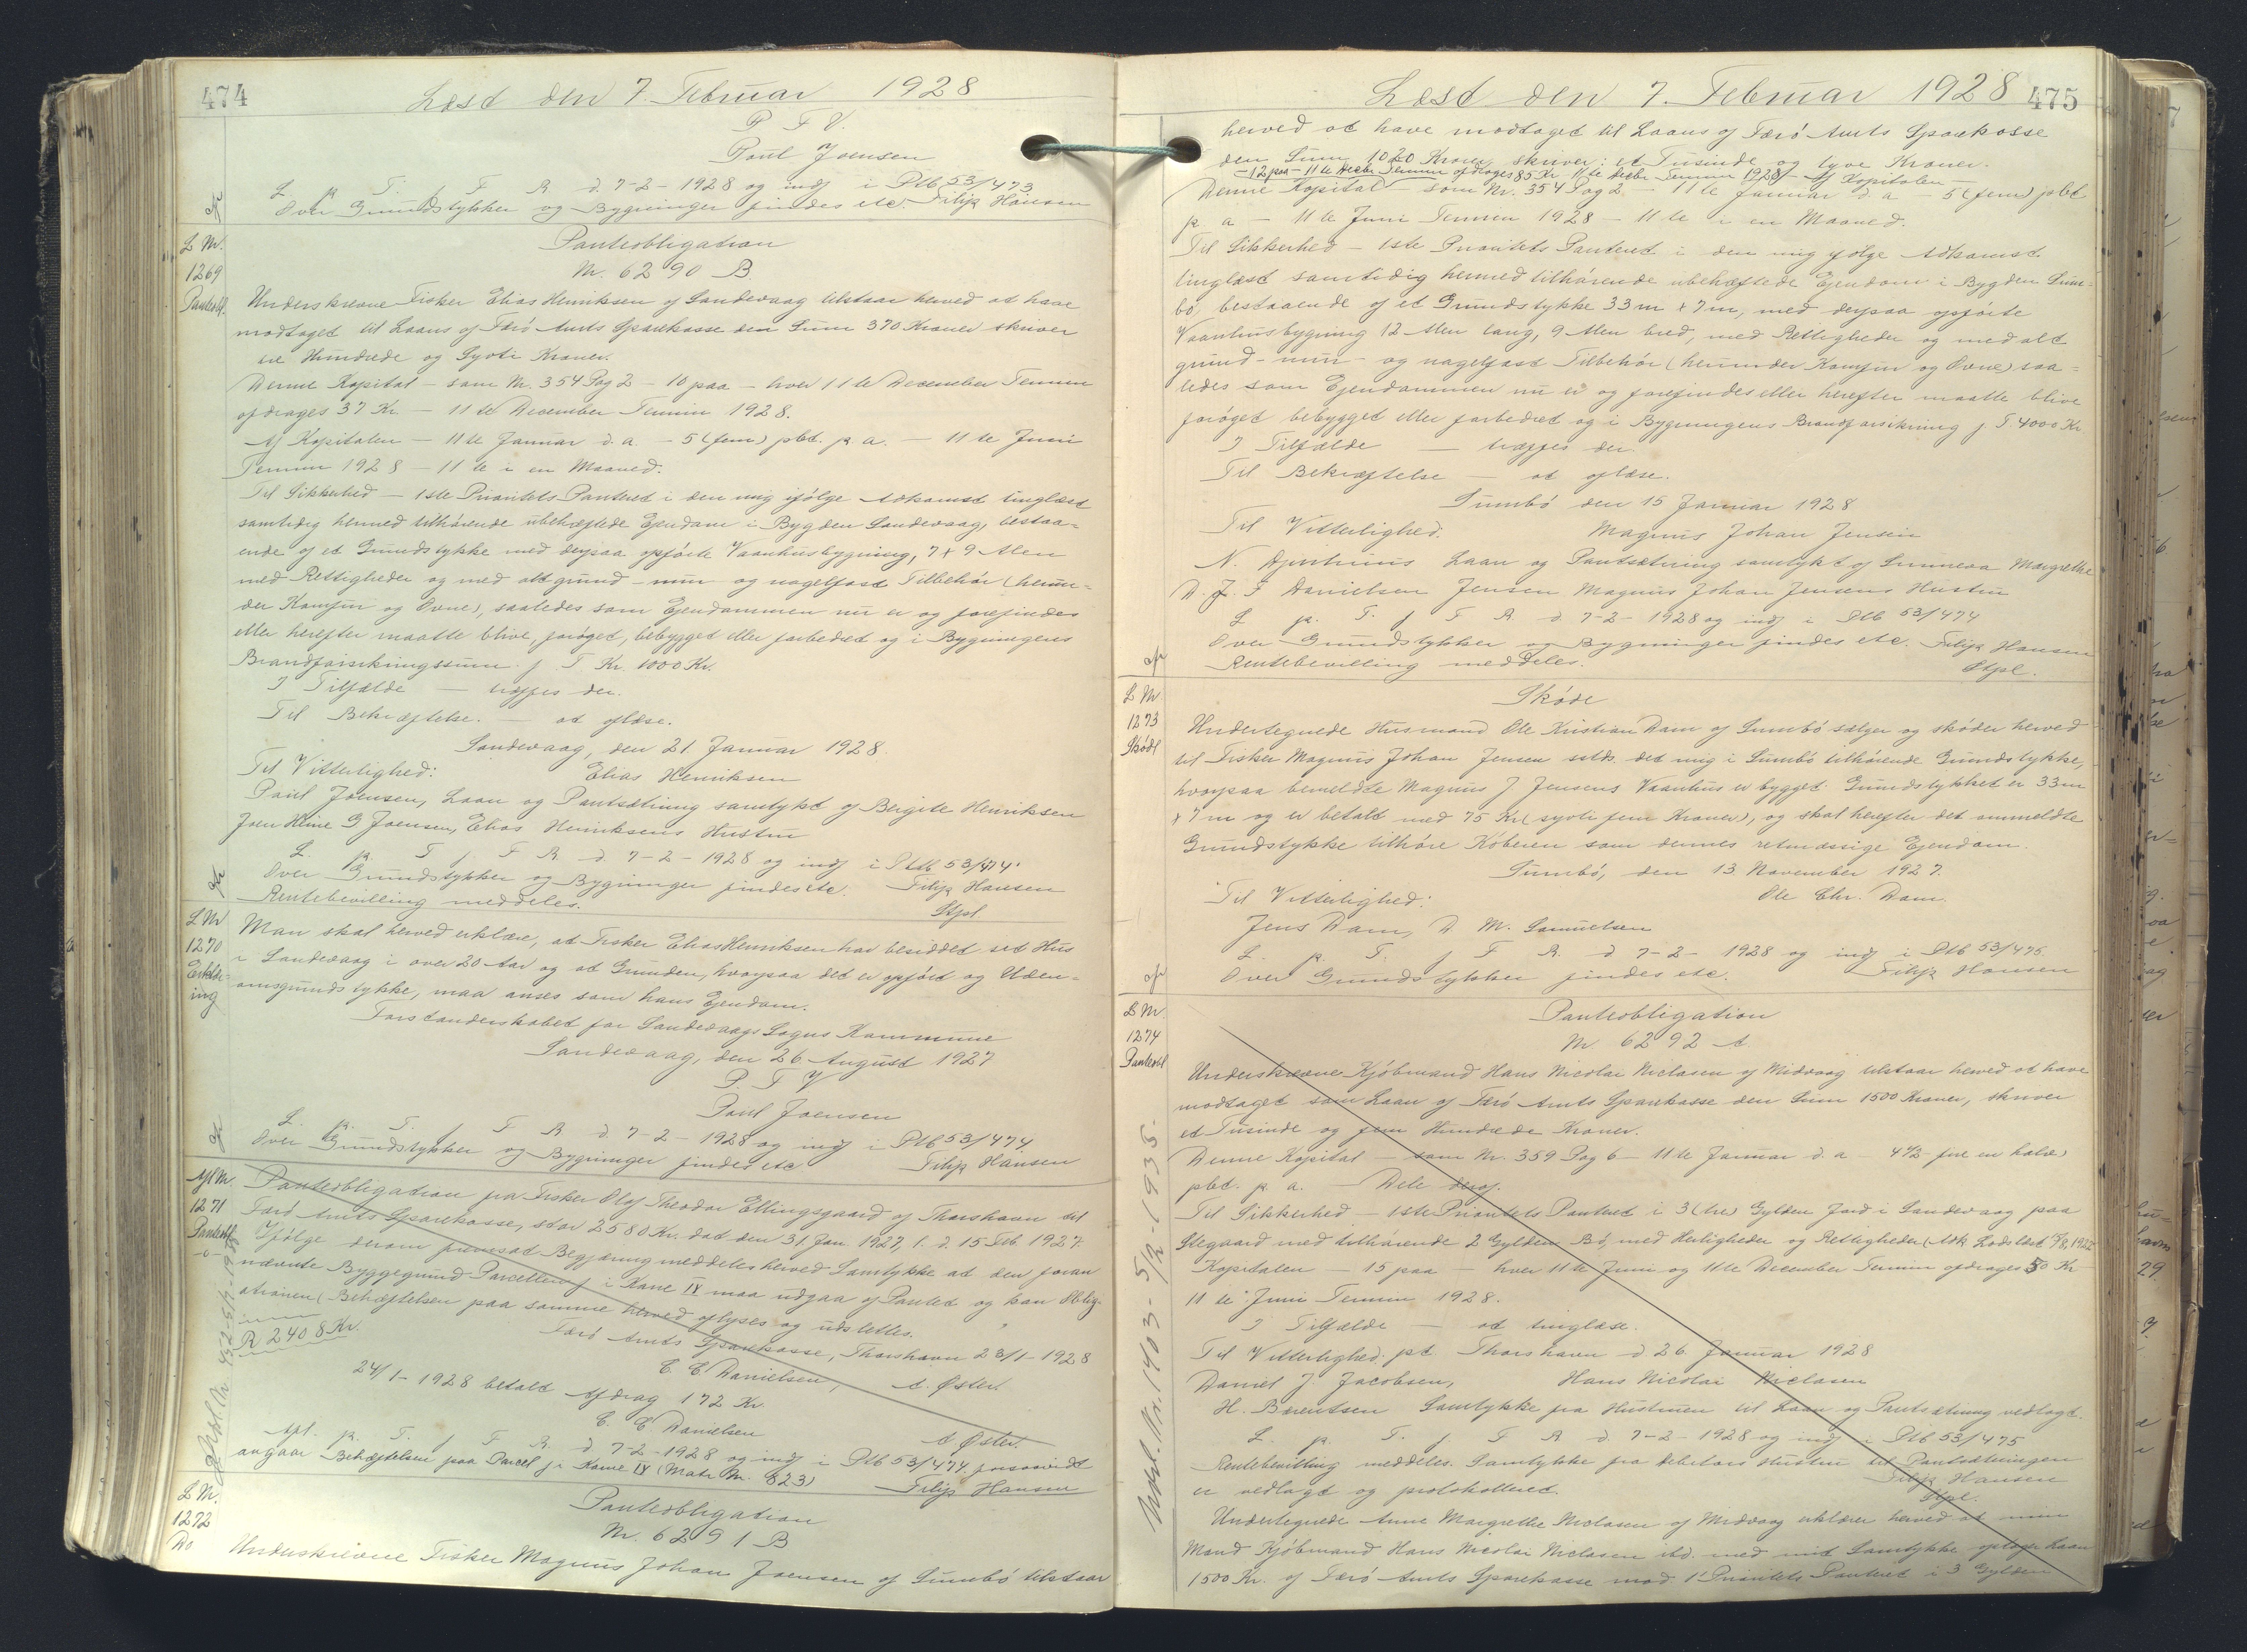 474
Læst den 7. Februar 1928
P. F. V.
Paul Joensen
L. p. T. f. F. R. d. 7-2-1928 og indf i Ptb 53/473
Over Grundstykker og Bygninger findes etc. Filip Hansen
L Nr.
1269
Panteobl.
Panteobligation
Nr. 6290 B.
Underskrevne Fisker Elias Henriksen af Sandevaag tilstaar herved at have
modtaget til Laans af Færø Amts Sparekasse den Sum 370 Kroner skriver
tre Hundrede og Syvti Kroner.
Denne Kapital - som Nr. 354 Pag 2 - 10 paa - hver 11te December Termin
afdrages 37 Kr. - 11te December Termin 1928.
Af Kapitalen - 11te Januar d. a. - 5 (fem) pCt. p. a. - 11te Juni
Termin 1928 - 11te i en Maaned.
Til Sikkerhed - 1ste Prioritets Panteret i den mig ifølge Adkomst tinglæst
samtidig hermed tilhørende ubehæftede Ejendom i Bygden Sandevaag, bestaa=
ende af et Grundstykke med derpaa opførte Vaanhusbygning, 7 x 9 Alen
med Rettigheder og med alt grund- mur- og nagelfast Tilbehør (herun=
der Komfur og Ovne), saaledes som Ejendommen nu er og forefindes
eller herefter maatte blive, forøget, bebygget eller forbedret og i Bygningens
Brandforsikringssum f. T Kr. 1000 Kr.
I Tilfælde — træffes der.
Til Bekræftelse. — at aflæse.
Sandevaag, den 21. Januar 1928.
Til Vitterlighed: Elias Henriksen
Paul Joensen, Laan og Pantsætning samtykt af Birgite Henriksen
Joen Heine G Joensen, Elias Henriksens Hustru
L. p. T. f. F. R. d. 7-2-1928 og indf i Ptb 53/474.
Over Grundstykker og Bygninger findes etc. Filip Hansen
Rentebevilling meddeles. Stpl.
L Nr
1270
Erklær=
ing
Man skal herved erklære, at Fisker Elias Henriksen har besiddet set Hus
i Sandevaag i over 20 Aar og at Grunden, hvorpaa det er opført og Uden=
omsgrundstykke, maa anses som hans Ejendom.
Forstanderskabet for Sandevaags Sogns Kommune
Sandevaag, den 26 August 1927
P. F. V
Paul Joensen
L. p. T. f. F. R. d. 7-2-1928 og indf i Ptb 53/474.
Over Grundstykker og Bygninger findes etc Filip Hansen
Afl Nr.
1271
Panteobl
Panteobligation fra Fisker Olaf Theodor Ellingsgaard af Thorshavn til
Færø Amts Sparekasse, stor 2580 Kr. dat den 31. Jan 1927, l. d. 15 Feb. 1927.
Ifølge derom fremsat Begjæring meddeles herved Samtykke at den foran
nævnte Byggegrund Parcellen f i Kane IV maa udgaa af Pantet og kan Oblig-
ationen (Behæftelsen paa samme herved aflyses og udslettes.
Færø Amts Sparekasse, Thorshavn 23/1-1928
R 2408 Kr.
C C Danielsen, A. Øster.
24/1-1928 betalt Afdrag 172 Kr.
C. C Danielsen A Øster.
Apl. p. T. f F R. d 7-2-1928 og indf i Ptb 53/474 forsaavidt
angaar Behæftelsen paa Parcel f i Kane IV (Matr Nr. 623) Filip Hansen
L Nr.
1272
Do
Panteobligation
Nr. 6291 B
Underskrevne Fisker Magnus Johan Joensen af Sumbø tilstaar
Læst den 7. Februar 1928
475
herved at have modtaget til Laans af Færø Amts Sparekasse
den Sum 1020 Kroner skriver: et Tusinde og tyve Kroner.
- 12 paa - 11te Decbr Termin afdrages 85 Kr. 11te Decbr Termin 1928 - Af Kapitalen
Denne Kapital - som Nr. 354 Pag 2 - 11te Januar d. a - 5 (fem) pCt
p. a - 11te Juni Termin 1928 - 11te i en Maaned.
Til Sikkerhed - 1ste Prioritets Panteret i den mig ifølge Adkomst
tinglæst samtidig hermed tilhørende ubehæftede Ejendom i Bygden Sum=
bø, bestaaende af et Grundstykke 33 m x 7 m, med derpaa opførte
Vaanhusbygning 12 Alen lang, 9 Alen bred, med Rettigheder og med alt
grund- mur- og nagelfast Tilbehør (herunder Komfur og Ovne) saa=
ledes som Ejendommen nu er og forefindes eller herefter maatte blive
forøget bebygget eller forbedret og i Bygningens Brandforsikring f. T 4000 Kr
I Tilfælde — træffes der.
Til Bekræftelse — at aflæse.
Sumbø den 15 Januar 1928
Til Vitterlighed. Magnus Johan Jensen
N. Djurhuus Laan og Pantsætning samtykt af Sunneva Margrethe
D. J. F Danielsen Jensen Magnus Johan Jensens Hustru
L p. T. f F R. d 7-2-1928 og indf i Ptb 53/474
Over Grundstykker og Bygninger findes etc. Filip Hansen
Rentebevilling meddeles. Stpl.
L Nr
1273
Skøde
Skøde
Undertegnede Husmand Ole Kristian Dam af Sumbø sælger og skøder herved
til Fisker Magnus Johan Jensen ssts. det mig i Sumbø tilhørende Grundstykke,
hvorpaa bemeldte Magnus J Jensens Vaanhus er bygget. Grundstykket er 33 m
x 7 m og er betalt med 75 Kr (syvti fem Kroner), og skal herefter det ommeldte
Grundstykke tilhøre Køberen som dennes retmæssige Ejendom.
Sumbø, den 13. November 1927.
Til Vitterlighed: Ole Chr. Dam.
Jens Dam, D M. Samuelsen
L. p. T. f F R. d 7-2-1928 og indf i Ptb 53/475.
Over Grundstykker findes etc. Filip Hansen
L Nr.
1274
Panteobl
Panteobligation
Nr. 6292 A
Underskrevne Kjøbmand Hans Nicolai Niclasen af Midvaag tilstaar herved at have
modtaget som Laan af Færø Amts Sparekasse den Sum 1500 Kroner, skriver
et Tusinde og fem Hundrede Kroner.
Denne Kapital - som Nr. 359 Pag 6 - 11te Januar d. a - 4½ fire en halv)
pCt. p. a. - Dele deraf.
Til Sikkerhed - 1ste Prioritets Panteret i 3 (tre) Gylden Jord i Sandevaag paa
Stegaard med tilhørende 2 Gylden Bø, med Herligheder og Rettigheder (Adk
Kapitalen - 15 paa - hver 11te Juni og 11te December Termin afdrages 50 Kr
11te Juni Termin 1928.
I Tilfælde — at tinglæse.
Til Vitterlighed: pt Thorshavn d. 26 Januar 1928
Daniel J. Jacobsen, Hans Nicolai Niclasen
H. Barentsen Samtykke fra Hustruen til Laan og Pantsætning vedlagt.
L. p. T. f. F R. d. 7-2-1928 og indf i Ptb 53/475
Rentebevilling meddeles. Samtykke fra Debitors Hustru til Pantsætningen
er vedlagt og protokolleret. Filip Hansen
Stpl.
Undertegnede Anne Margrethe Niclasen af Midvaag erklærer herved at min
Mand Kjøbmand Hans Nicolai Niclasen ibd. med mit Samtykke optager Laan
1500 Kr. af Færø Amts Sparekasse mod 1' Prioritets Panteret i 3 Gylden
Udsl. Nr. 1403 - 5/12-1935.